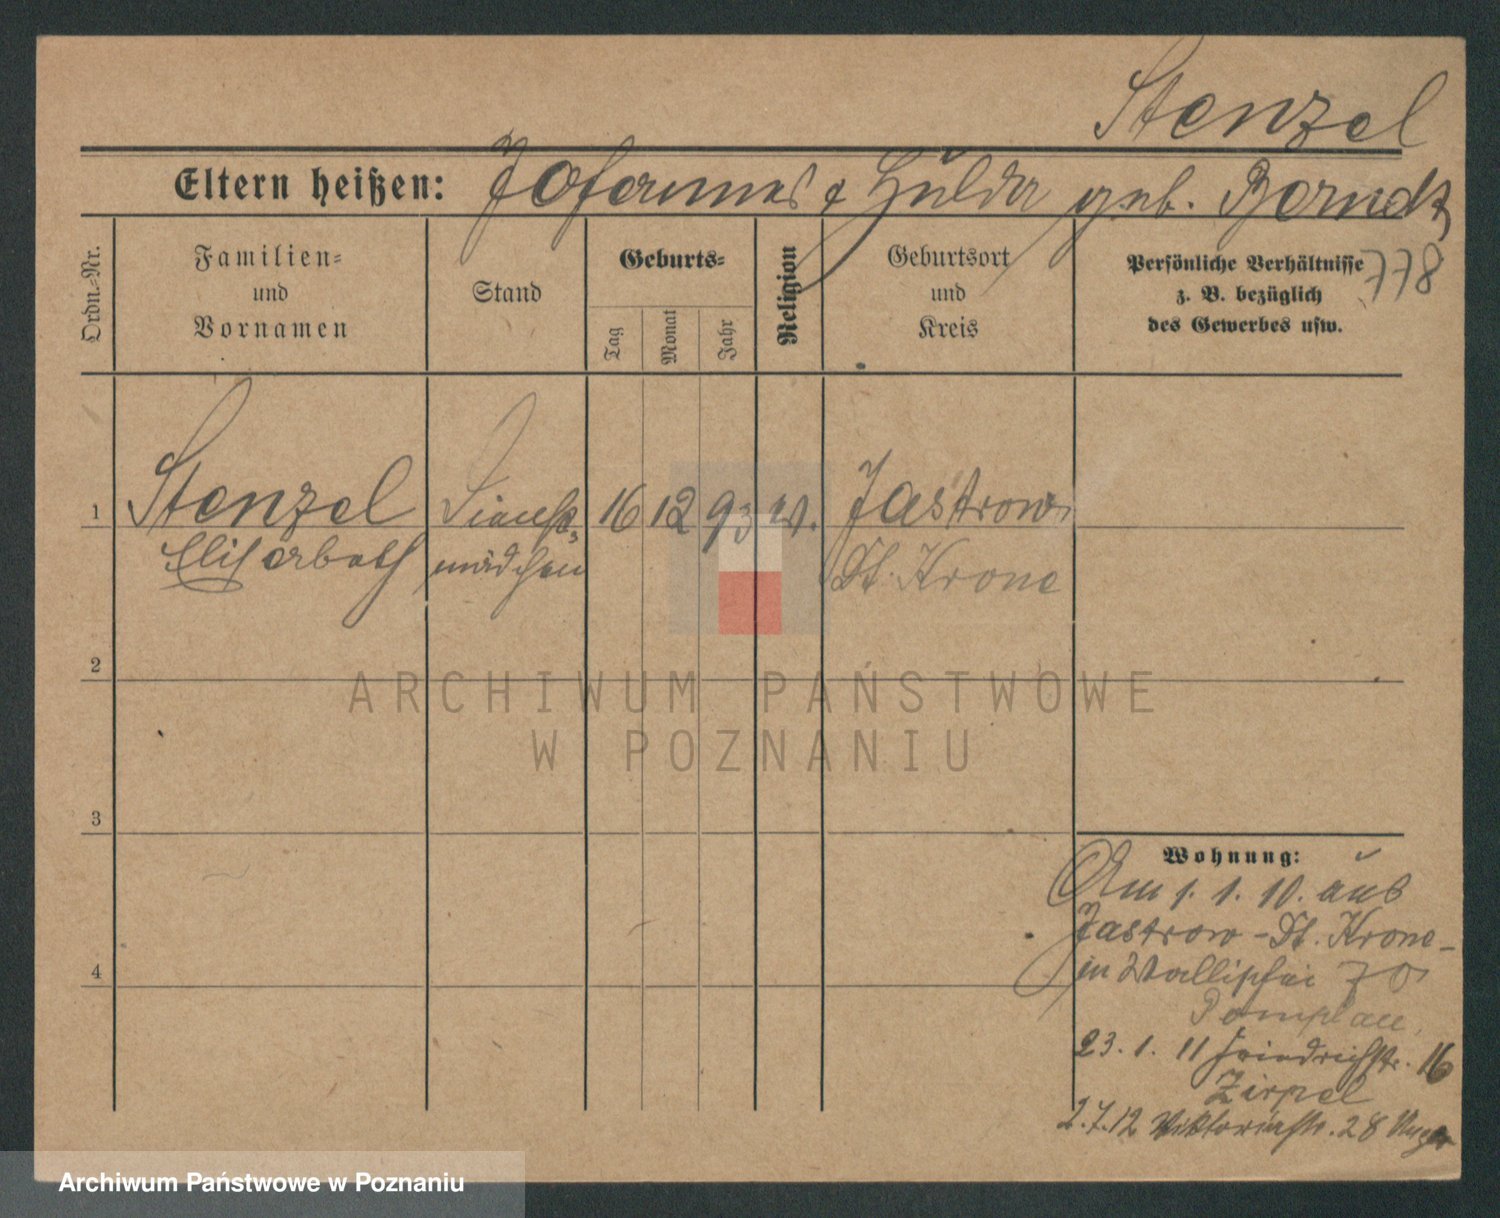 Stenzel
Eltern heißen: Johannes & Hulda geb. Berndt
778
Ordn.-Nr.
Familien-
und
Vornamen
Stand
Geburts-
Tag
Monat
Jahr
Religion
Geburtsort
und
Kreis
Persönliche Verhältnisse
z. B. bezüglich
des Gewerbes usw.
1
Stenzel
Elisabeth
Dienst-
mädchen
16 12 93
Jastrow
Dt. Krone
2
3
4
ARCHIWUM PAŃSTWOWE
W POZNANIU
Wohnung:
Am 1. 1. 10. aus
Jastrow - Dt. Krone -
in Wallischei 70
23. 1. 11 Friedrichstr. 16
Zirpel
2.7.12 Viktoriastr. 28 Unger
Archiwum Państwowe w Poznaniu